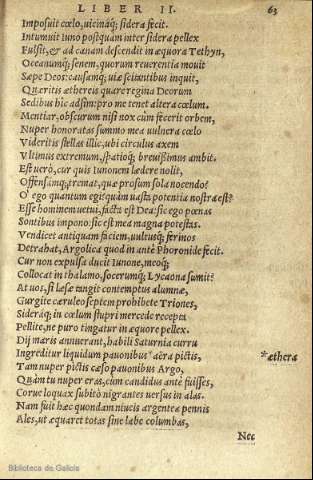 LIBER II. 63
Imposuit cœlo, uicinaq; sidera fecit.
Intumuit Iuno postquam inter sidera pellex
Fulsit, & ad canam descendit in æquora Tethyn,
Oceanumq; senem, quorum reuerentia mouit
Sæpe Deos: causamq; uiæ scitantibus inquit,
Quæritis æthereis quare regina Deorum
Sedibus hic adsim: pro me tenet altera cœlum.
Mentiar, obscurum nisi nox cùm fecerit orbem,
Nuper honoratas summo mea uulnera cœlo
Videritis stellas illic, ubi circulus axem
Vltimus extremum, spatioq; breuissimus ambit.
Est uerò, cur quis Iunonem lædere nolit,
Offensamq; tremat, quæ prosum sola nocendo?
O' ego quantum egi: quàm uasta potentia nostra est?
Esse hominem uetui, facta est Dea: sic ego pœnas
Sontibus impono: sic est mea magna potestas.
Vendicet antiquam faciem, uultusq; ferinos
Detrahat, Argolica quod in antè Phoronide fecit.
Cur non expulsa ducit Iunone, meoq;
Collocat in thalamo, socerumq; Lycaona sumit?
At uos, si læsæ tangit contemptus alumnæ,
Gurgite cæruleo septem prohibete Triones,
Sideraq; in cœlum stupri mercede recepta
Pellite, ne puro tingatur in æquore pellex.
Dij maris annuerant, habili Saturnia curru
Ingreditur liquidum pauonibus *aëra pictis, *æthera
Tam nuper pictis cæso pauonibus Argo,
Quàm tu nuper eras, cùm candidus antè fuisses,
Corue loquax subitò nigrantes uersus in alas.
Nam fuit hæc quondam niueis argentea pennis
Ales, ut æquaret totas sine labe columbas,
Nec
Biblioteca de Galicia